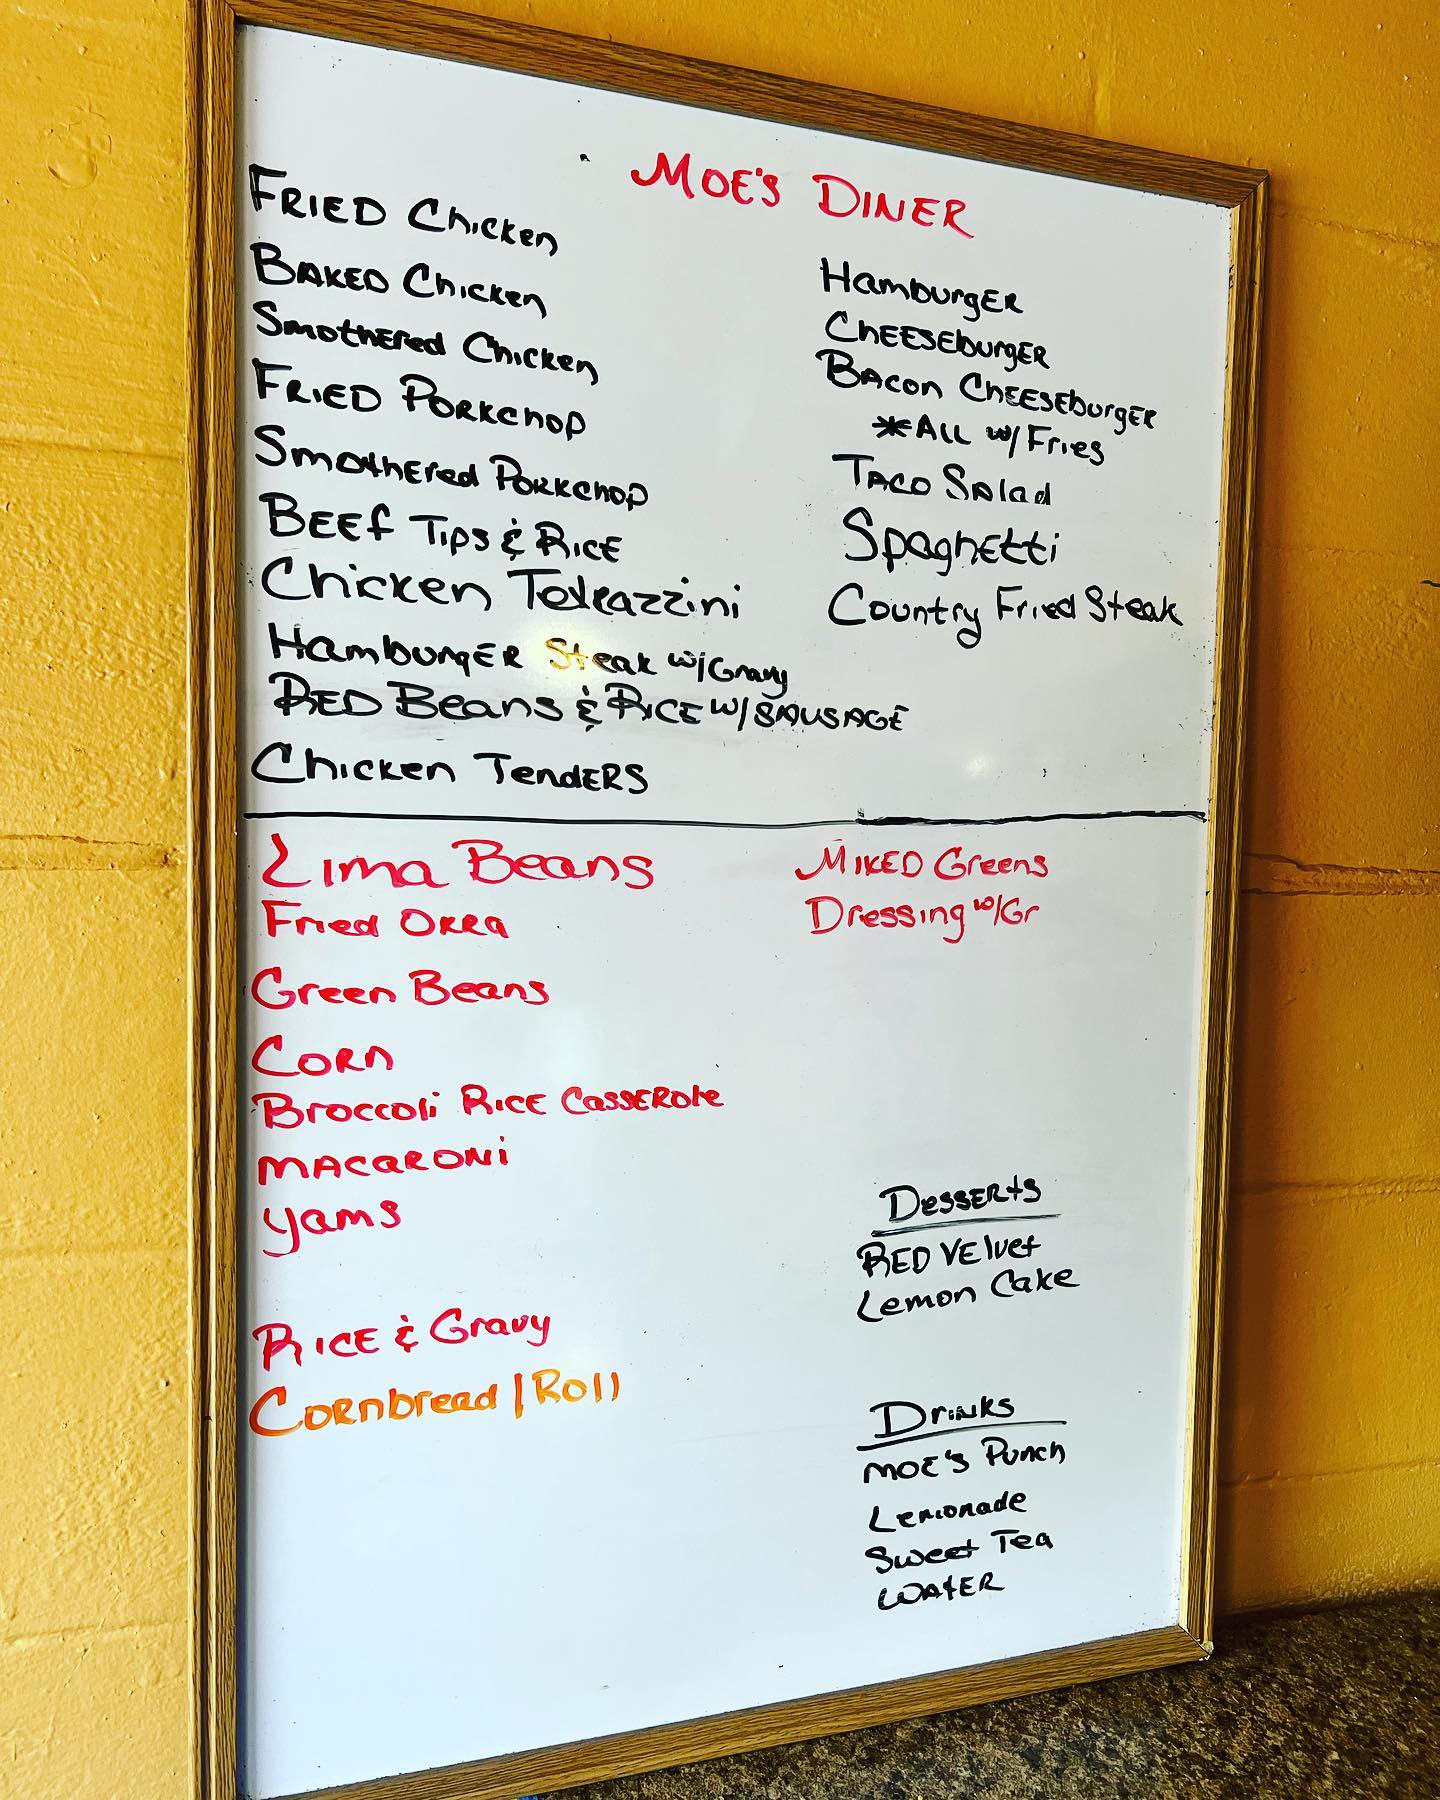 MOE'S DINER
FRIED Chicken
BAKED Chicken
Smothered Chicken
FRIED PORKchop
Smothered PORKchop
BEEf Tips & RicE
Chicken Tetrazzini
HamburgER Steak w/Gravy
RED Beans & RiCE w/SAUSAGE
Chicken TendERS
HamburgER
ChEESEburgER
BAcon ChEESEburgER
*All w/Fries
TACO SAlad
SpaghEtti
Country Fried Steak
Lima Beans
Fried OKRA
Green Beans
CORn
Broccoli RiCE CaSSEROle
MACARONi
yams
RiCE & Gravy
CORnbread / ROll
MiXED Greens
Dressing w/Gr
DeSSERtS
RED VElvet
Lemon Cake
DriNKS
MOE'S Punch
Lemonade
Sweet Tea
WAtER